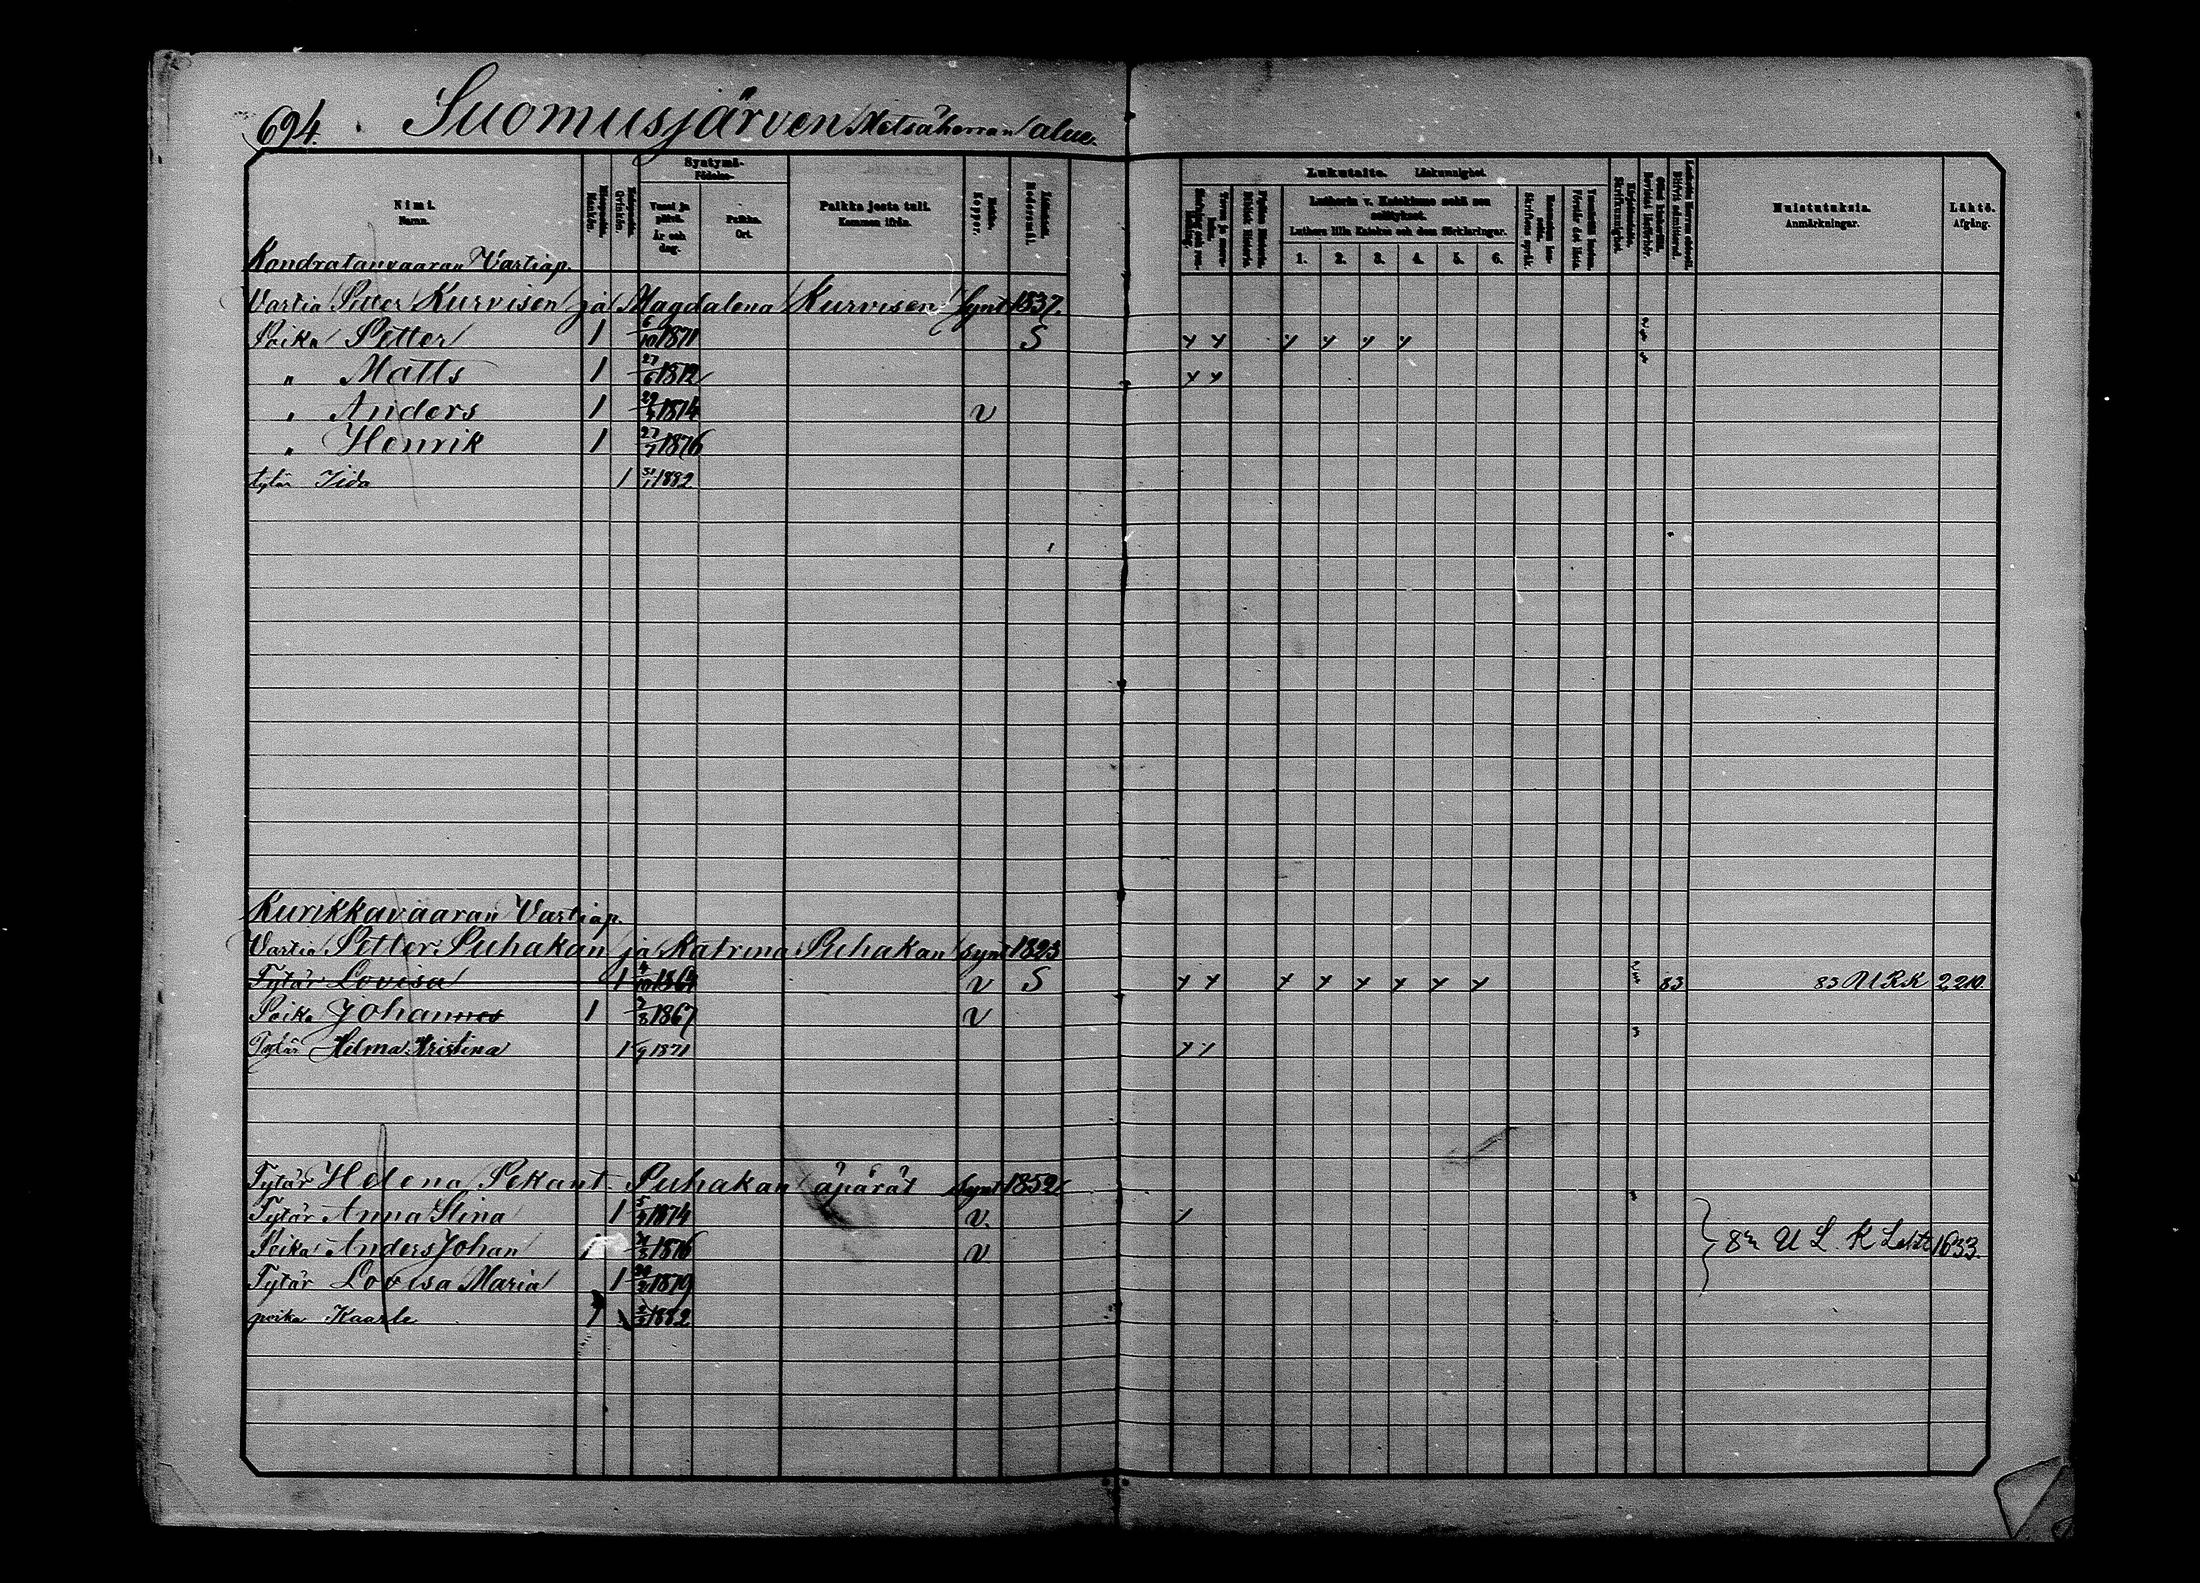 694. Suomusjärven Metsäherran alue.
Nimi. Namn.
Syntymä- Födelse-
Vuosi ja päivä. År och dag.
Paikka. Ort.
Paikka josta tuli. Kommen ifrån.
Rokko. Koppor.
Lukutaito. Läskunnighet
Lutherin v. Katekismo sekä sen selitykset.
Luthers lilla Kateket och dess förklaringar.
1. 2. 3. 4. 5. 6.
Muistutuksia. Anmärkningar.
Lähtö. Afgång.
Kondratanvaaran Vartiap.
Vartia Petter Kurvisen ja Magdalena Kurvisen Synt 1837.
Poika Petter 1 6/10 1871 S y y y y y y
" Matts 1 27/6 1872 y y
" Anders 1 1874 v
" Henrik 1 27/7 1876
tytär Iida 1 31/1 1882
Kurikkavaaran Vartiap.
Vartia Petter Puhakan ja Katrina Puhakan synt 1823
Tytär Lovisa 1 4/10 1864 v S y y y y y y y y 83 83 U R K 2210
Poika Johannes 1 2/8 1867 v
Tytär Hilma Kristina 1 1871 y y
Tytär Helena Pekant. Puhakan äpärät Synt 1852
Tytär Anna Stina 1 1874 v. y
Poika Anders Johan 1 1876 v. U L. K 1633.
Tytär Lovisa Maria 1 1879
poika Kaarle 1 1882